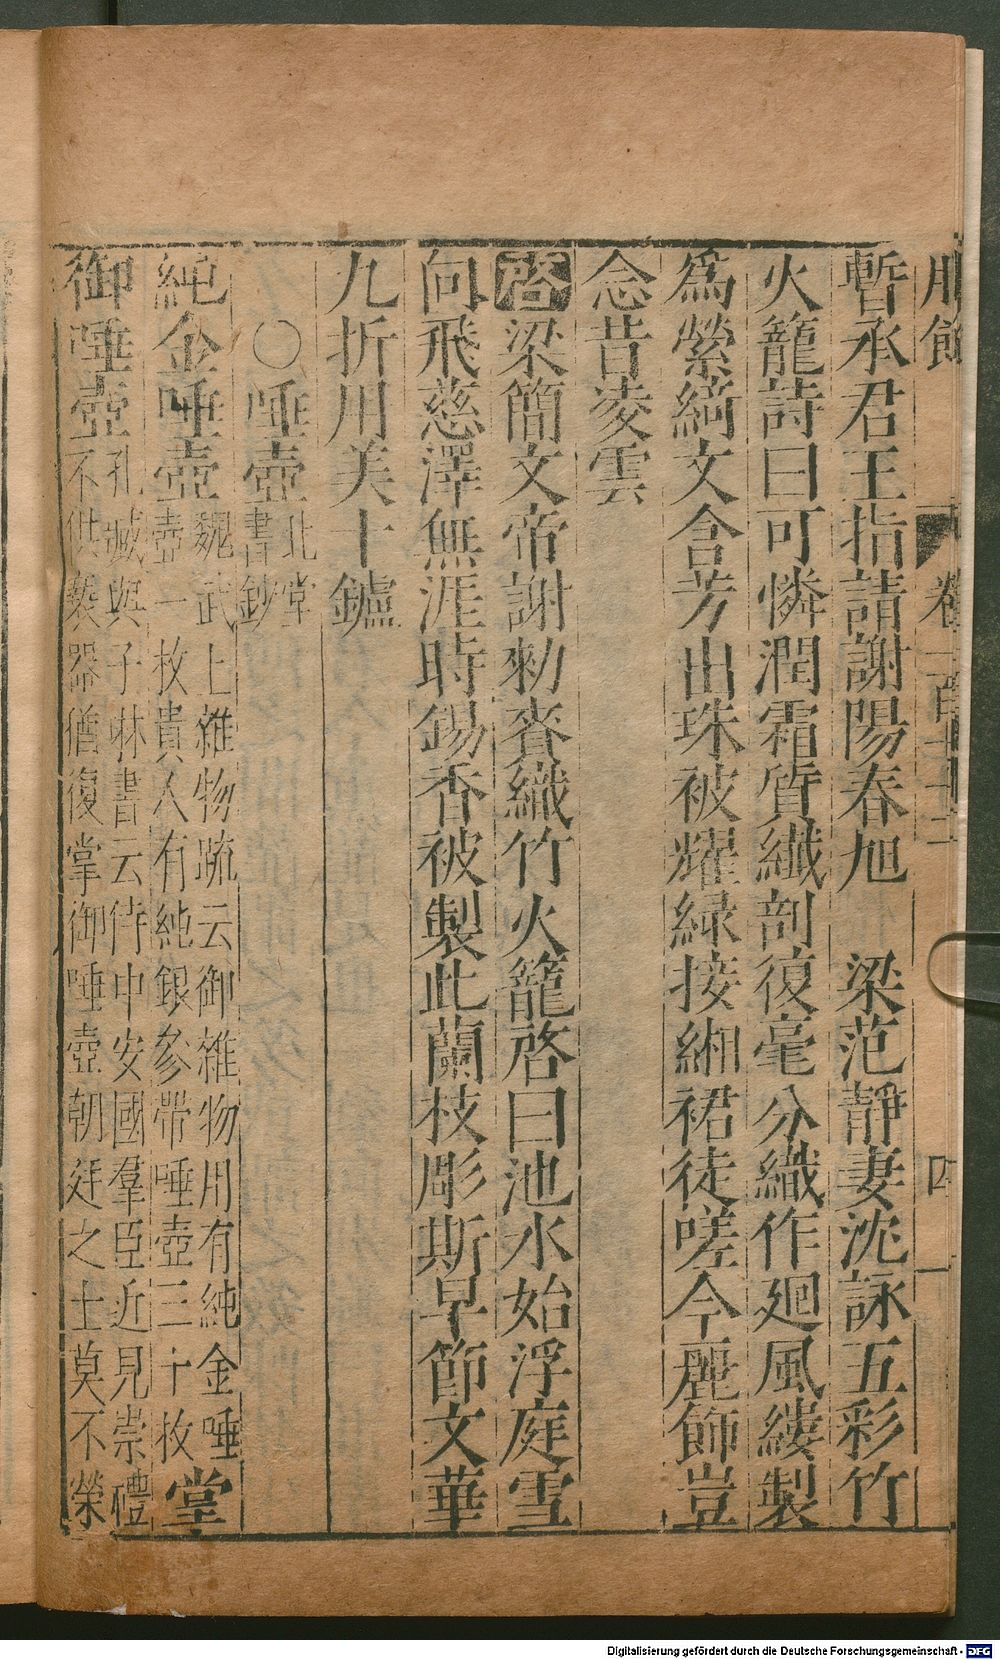 服飾 卷一百四十二 四
暫承君王指請謝陽春旭 梁范靜妻沈詠五彩竹
火籠詩曰可憐潤霜質纎剖復毫分織作廻風縷製
爲縈綺文含芳出珠被耀緑接緗裙徒嗟今麗飾豈
念昔凌雲
啓梁簡文帝謝勑賚織竹火籠啓曰池水始浮庭雪
向飛慈澤無涯時錫香被製此蘭枝彫斯早節文華
九折用美十鑪
〇唾壺北堂
書鈔
純金唾壺魏武上雜物疏云御雜物用有純金唾
壺一枚貴人有純銀參帶唾壺三十枚堂
御唾壺孔臧與子琳書云侍中安國羣臣近見崇禮
不供䙝器猶復掌御唾壺朝廷之士莫不榮
Digitalisierung gefördert durch die Deutsche Forschungsgemeinschaft - DFG